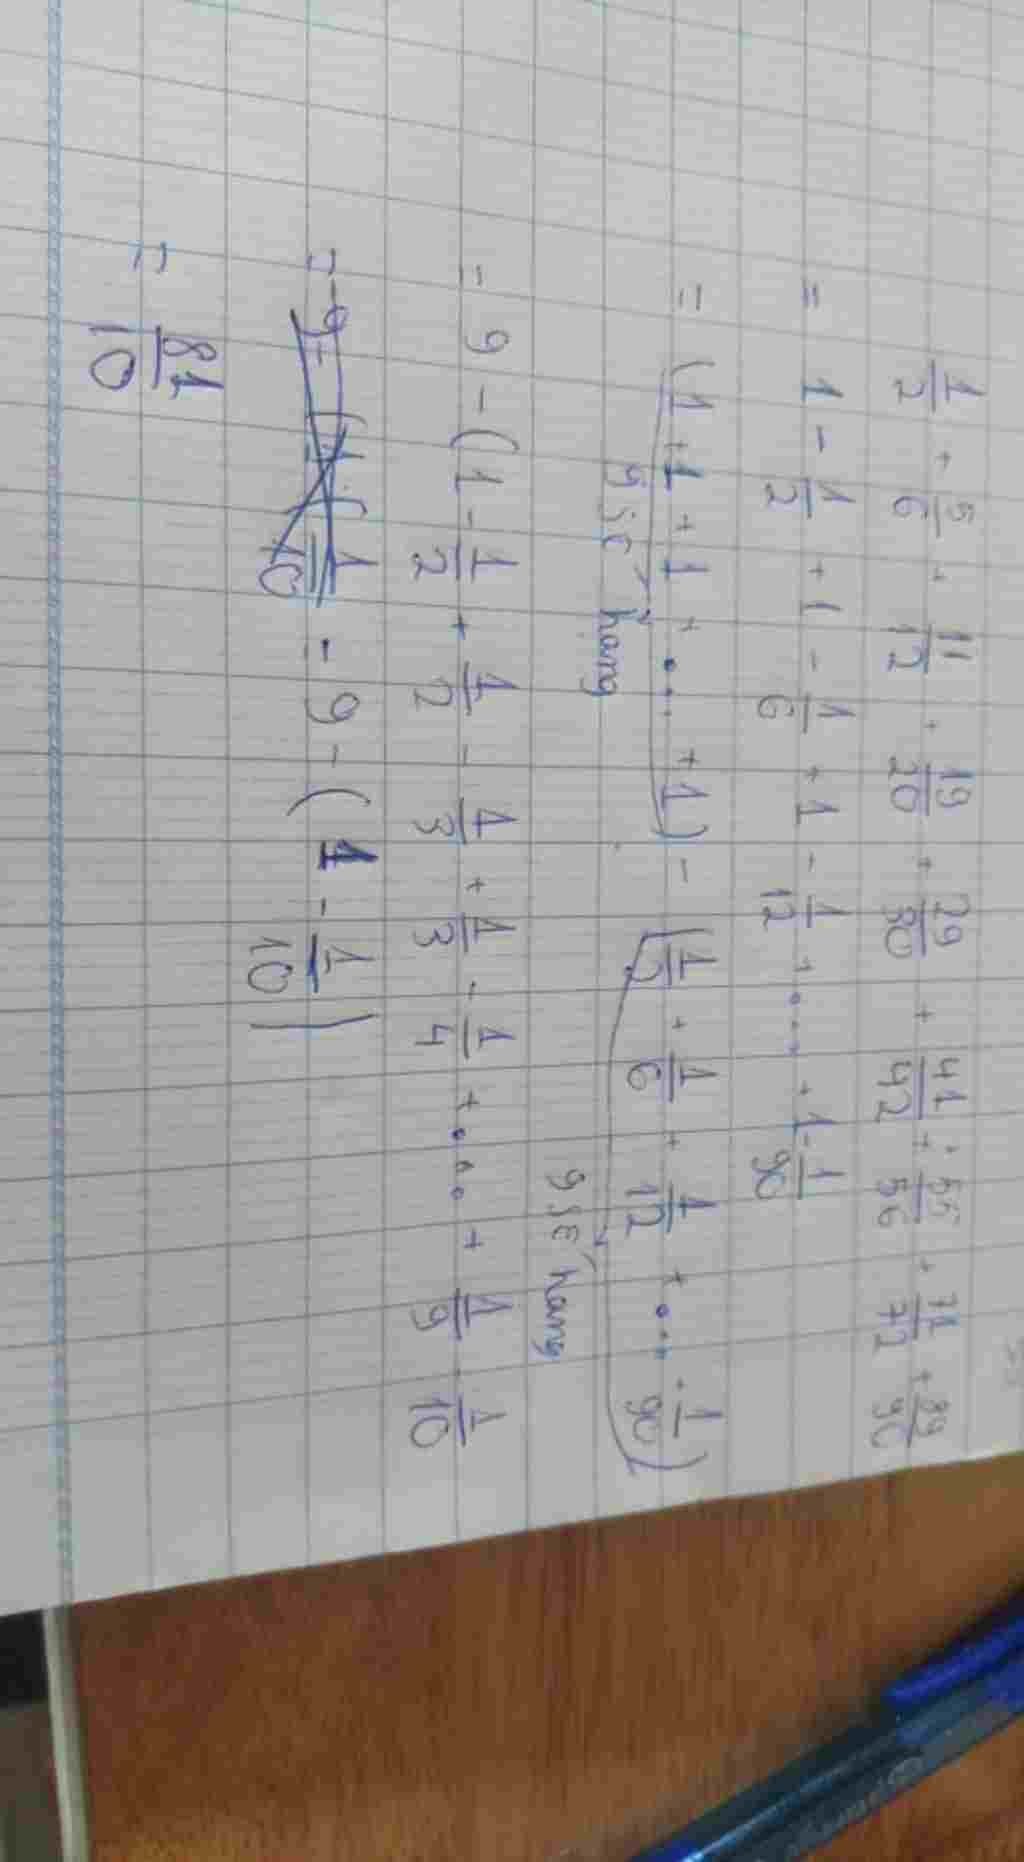 1/2 + 5/6 + 11/12 + 19/20 + 29/30 + 41/42 + 55/56 + 71/72 + 89/90
= 1 - 1/2 + 1 - 1/6 + 1 - 1/12 + ... + 1 - 1/90
= (1 + 1 + 1 + ... + 1) - (1/2 + 1/6 + 1/12 + ... + 1/90)
9 số hạng 9 số hạng
= 9 - (1 - 1/2 + 1/2 - 1/3 + 1/3 - 1/4 + ... + 1/9 1/10
= 9 - (1 - 1/10)
= 81/10